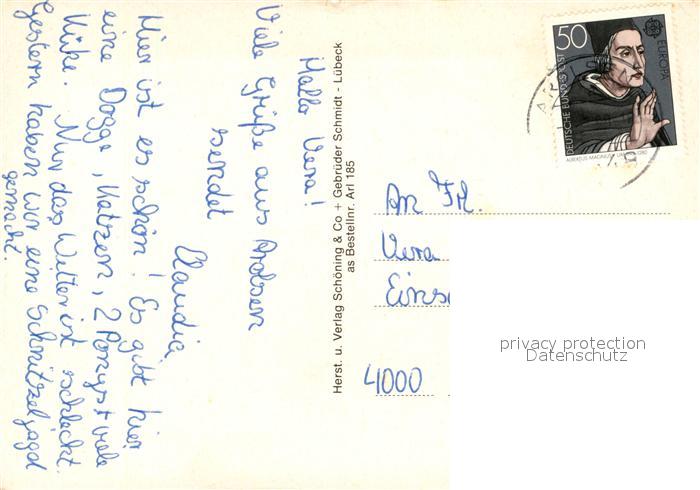 Hallo Vera!
Viele Grüße aus Arolsen
sendet
Claudia
Hier ist es schön! Es gibt hier
eine Dogge, Katzen, 2 Ponys + viele
Küke. Nur das Wetter ist schlecht.
Gestern haben wir eine Schnitzeljagd
gemacht.
Herst. u. Verlag Schöning & Co + Gebrüder Schmidt - Lübeck
as Bestellnr. Arl 185
50
DEUTSCHE BUNDESPOST
EUROPA
ALBERTUS MAGNUS
An Frl.
Vera
Eins
4000
privacy protection
Datenschutz